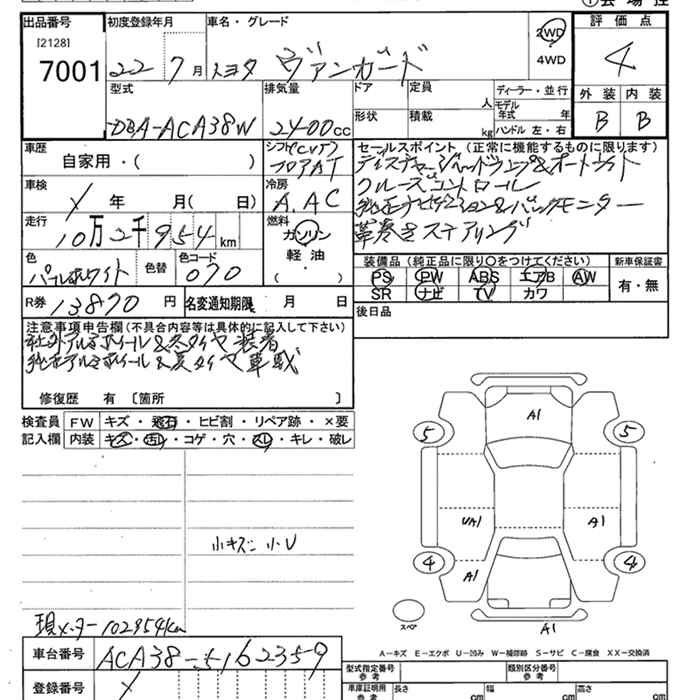 ①会場控
出品番号 初度登録年月 車名・グレード 評価点
[2128]
7001 22 7月 トヨタ ヴァンガード 2WD 4WD 4
型式 排気量 ドア 定員 人 ディーラー・並行 外装 内装
DBA-ACA38W 2400cc 形状 積載 kg モデル年式 年 ハンドル 左・右 B B
車歴 自家用・( ) シフト(CVT) フロアAT
セールスポイント(正常に機能するものに限ります)
ディスチャージヘッドランプ&オートライト
クルーズコントロール
純正ナビゲーション&バックモニター
革巻きステアリング
車検 年 月( 日) 冷房 A.AC
走行 10万2千954km 燃料 ガソリン 軽油・( )
色 パールホワイト 色替 色コード 070
装備品(純正品に限り○をつけてください) 新車保証書
PS PW ABS エアB AW 有・無
SR ナビ TV カワ
R券 13870円 名変通知期限 月 日
後日品
注意事項申告欄(不具合内容等は具体的に記入して下さい)
社外アルミホイール&冬タイヤ装着
純正アルミホイール&夏タイヤ車載
修復歴 有 [箇所 ]
検査員記入欄 FW キズ・飛石・ヒビ割・リペア跡・×要
内装 キズ・汚レ・コゲ・穴・スレ・キレ・破レ
A1
5 5
UA1 A1
4 A1 4
小キズ 小U
スペア A1
現メーター102954km
A-キズ E-エクボ U-凹み W-補修跡 S-サビ C-腐食 XX-交換済
車台番号 ACA38-5162359
登録番号
型式指定番号 参考 類別区分番号 参考
車庫証明用 参考 長さ cm 幅 cm 高さ cm